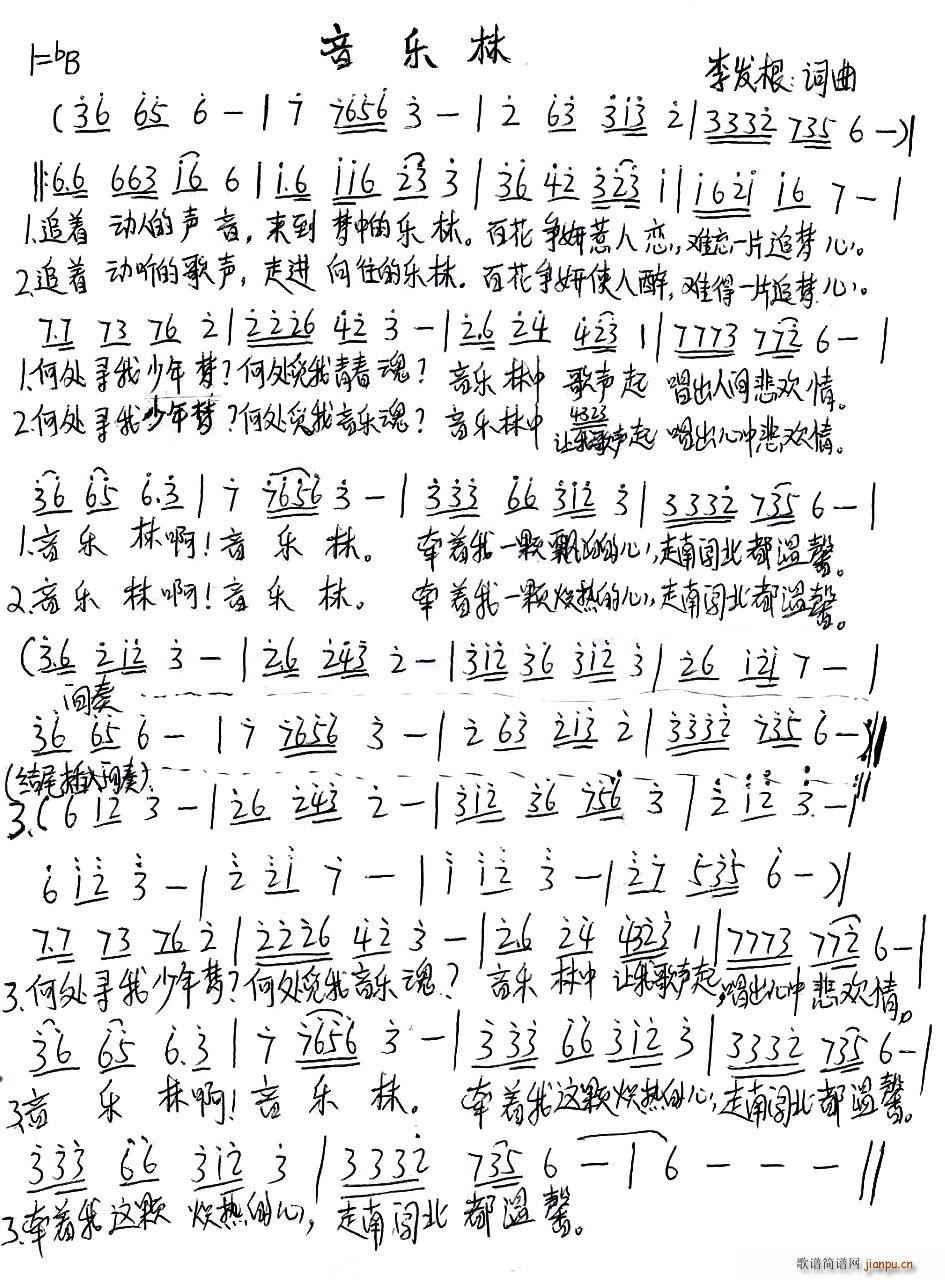 音乐林
1=ᵇB
李发根:词曲
(36 65 6 - | 7 7656 3 - | 2 63 313 2 | 3332 735 6 - )|
‖:6.6 663 i6 6 | i.6 ii6 23 3 | 36 42 323 i | i62i i6 7 - |
1.追着 动人的声音,来到 梦中的乐林。百花争妍惹人恋,难忘一片追梦心。
2.追着 动听的歌声,走进 向往的乐林。百花争妍使人醉,难得一片追梦心。
7.7 73 76 2 | 2226 42 3 - | 2.6 24 423 1 | 7773 772 6 - |
1.何处寻我少年梦?何处觅我青春魂? 音乐林中 歌声起 唱出人间悲欢情。
4323
2.何处寻我少年梦?何处觅我音乐魂? 音乐林中 让我歌声起 唱出心中悲欢情。
36 65 6.3 | 7 7656 3 - | 333 66 312 3 | 3332 735 6 - |
1.音乐林啊!音乐林。 牵着我一颗的心,走南闯北都温馨。
2.音乐林啊!音乐林。 牵着我一颗炽热的心,走南闯北都温馨。
(3.6 212 3 - | 2.6 243 2 - | 312 36 312 3 | 26 121 7 - |
间奏
36 65 6 - | 7 7656 3 - | 2 63 213 2 | 3332 735 6 - :‖
(结尾插入间奏)
3.(6 12 3 - | 26 243 2 - | 312 36 756 3 | 2 12 3 - |
6 12 3 - | 2 21 7 - | 1 12 3 - | 27 535 6 - )|
7.7 73 76 2 | 2226 42 3 - | 2.6 24 4323 1 | 7773 772 6 - |
3.何处寻我少年梦?何处觅我音乐魂? 音乐林中 让我歌声起,唱出心中悲欢情。
36 65 6.3 | 7 7656 3 - | 333 66 312 3 | 3332 735 6 - |
3.音乐林啊!音乐林。 牵着我这颗炽热的心,走南闯北都温馨。
333 66 312 3 | 3332 735 6 - | 6 - - - ‖
3.牵着我这颗 炽热的心,走南闯北都温馨。
歌谱简谱网
jianpu.cn